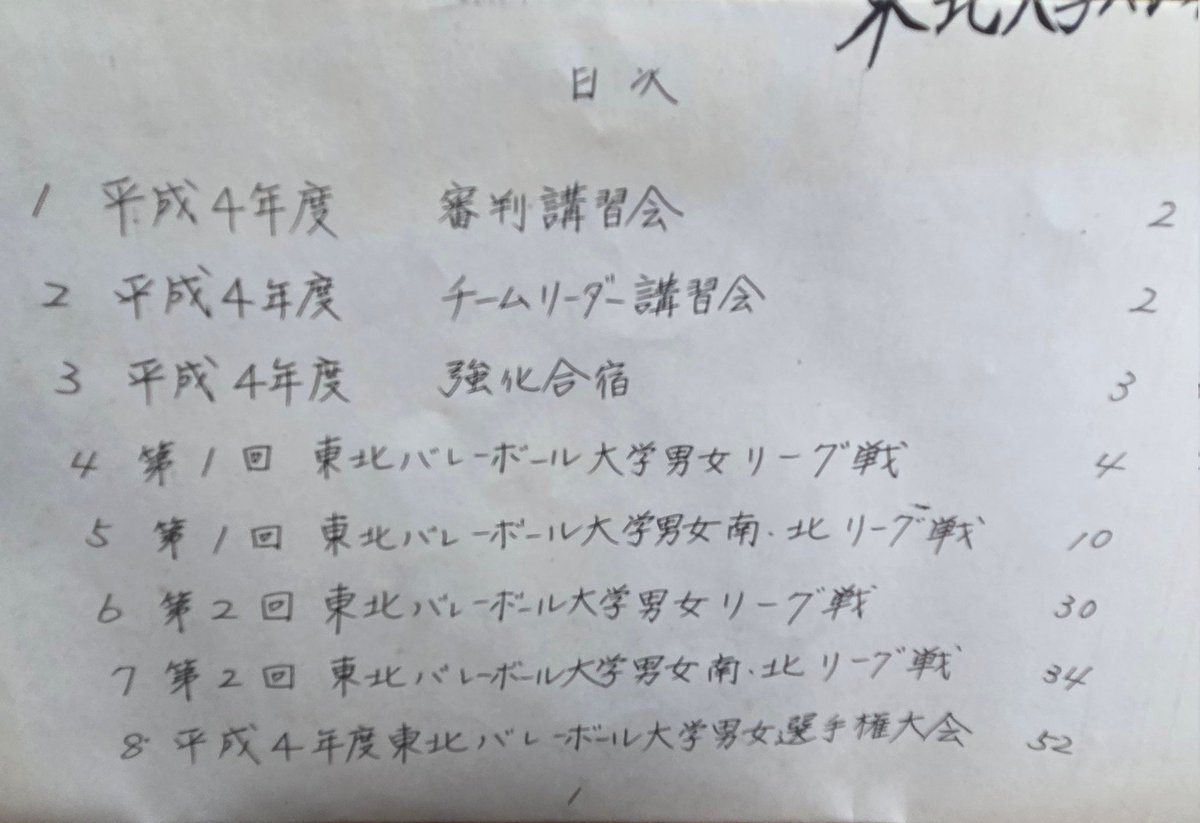 東北大学バレ
目次
1 平成4年度 審判講習会 2
2 平成4年度 チームリーダー講習会 2
3 平成4年度 強化合宿 3
4 第1回 東北バレーボール大学男女リーグ戦 4
5 第1回 東北バレーボール大学男女南・北リーグ戦 10
6 第2回 東北バレーボール大学男女リーグ戦 30
7 第2回 東北バレーボール大学男女南・北リーグ戦 34
8 平成4年度東北バレーボール大学男女選手権大会 52
1